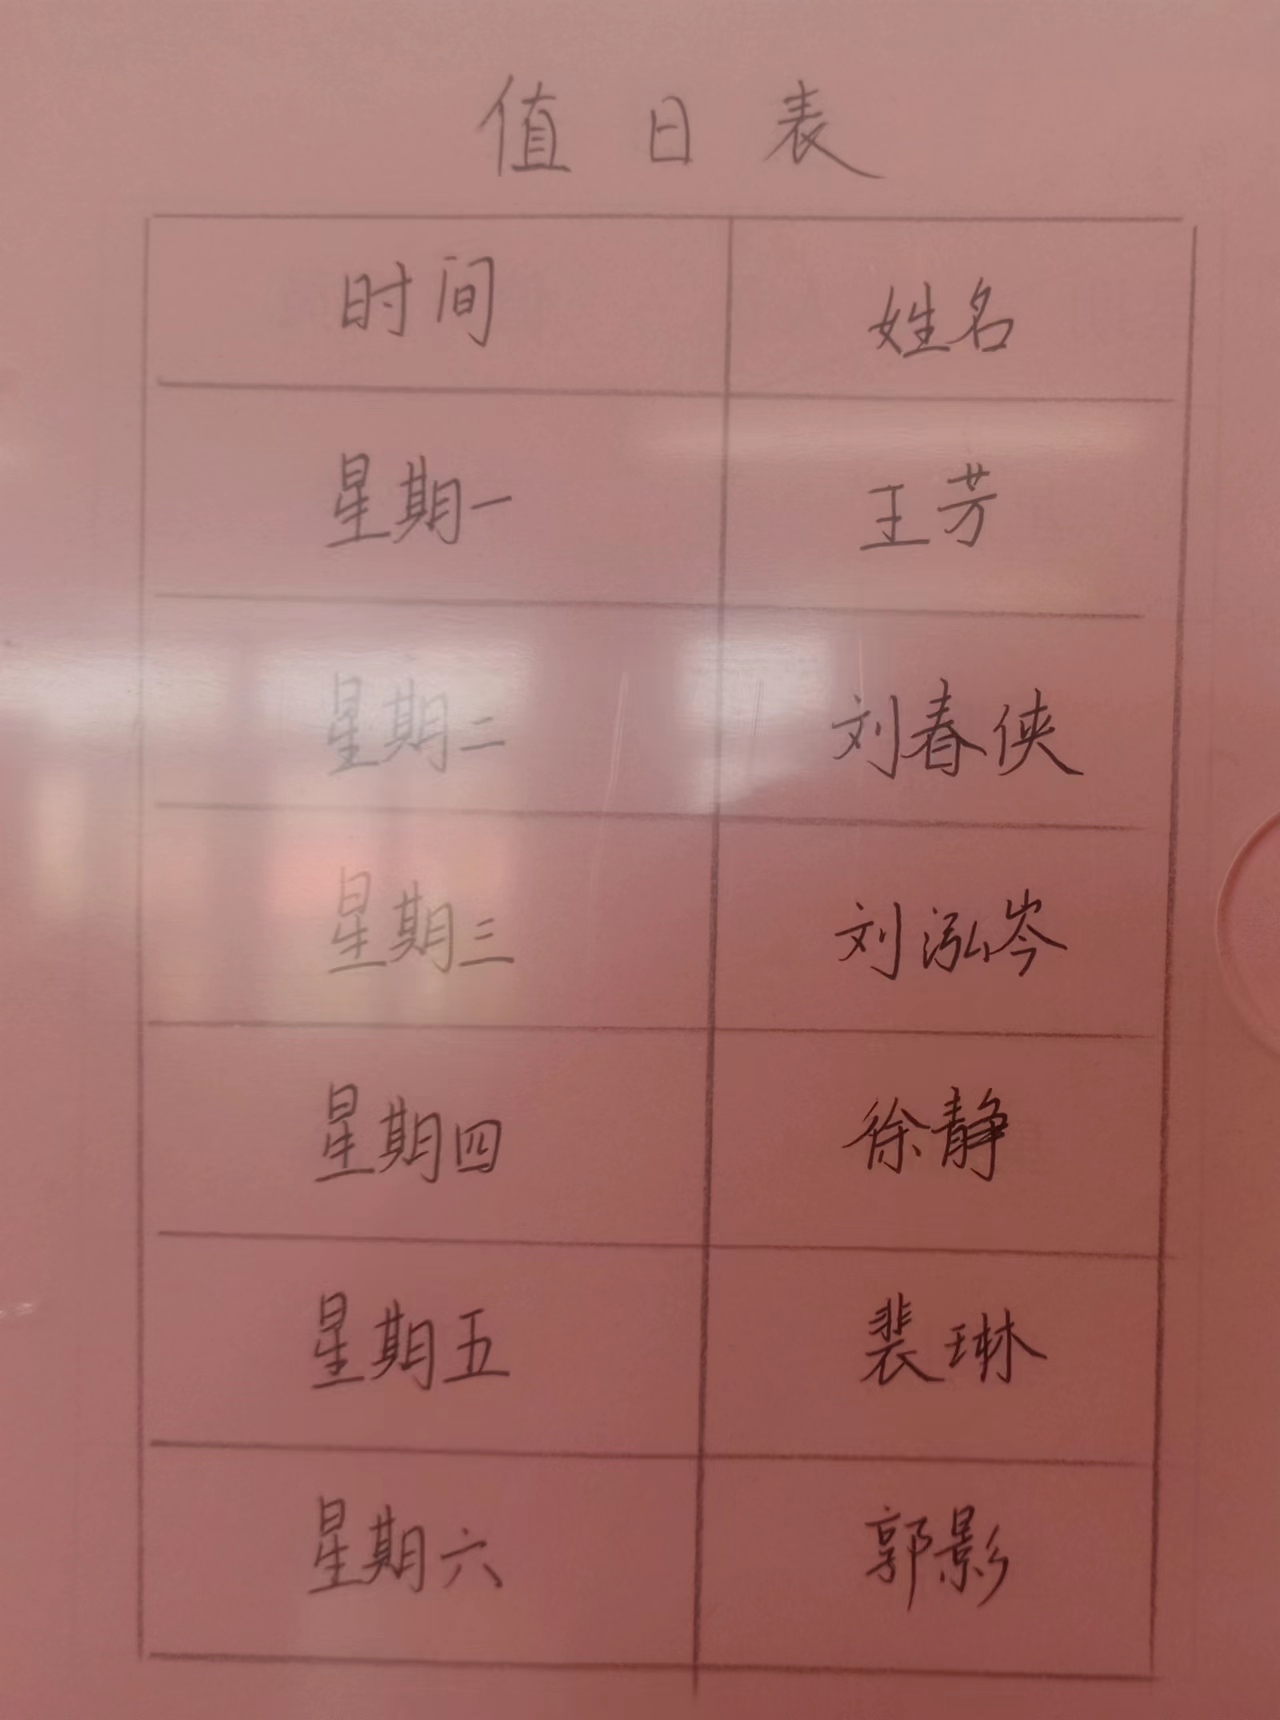 值日表
时间 姓名
星期一 王芳
星期二 刘春侠
星期三 刘泓岑
星期四 徐静
星期五 裴琳
星期六 郭影